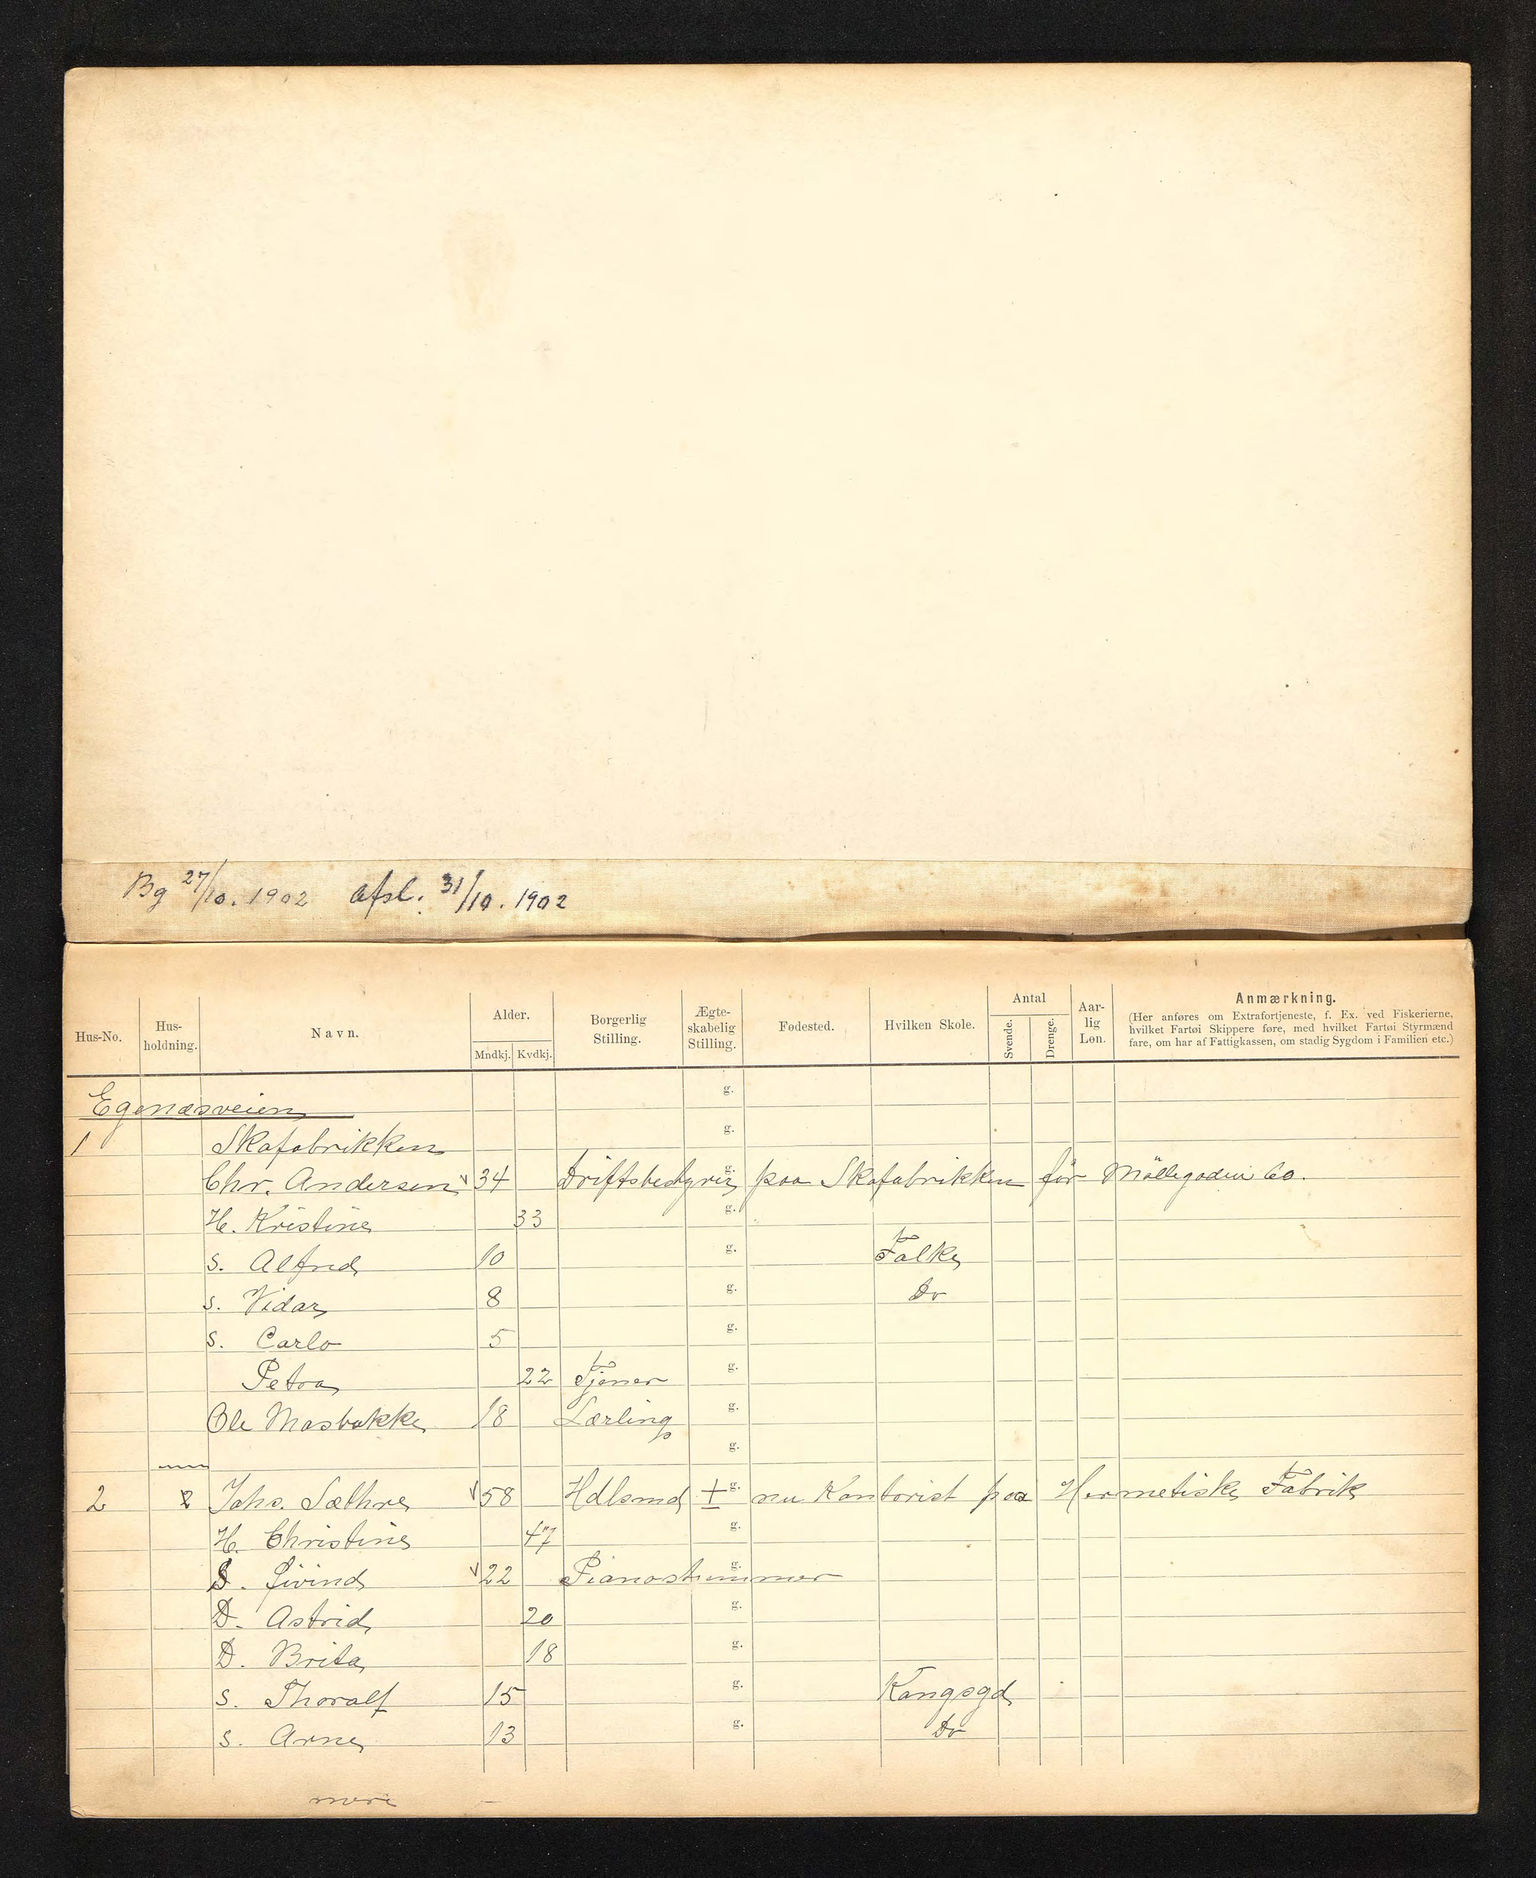 Bg 27/10. 1902 afsl. 31/10. 1902
Hus-No. Hus-holdning. Navn. Alder. Mndkj. Kvdkj. Borgerlig Stilling. Ægte-skabelig Stilling. Fødested. Hvilken Skole. Antal Svende. Drenge. Aar-lig Løn. Anmærkning.
(Her anføres om Extrafortjeneste, f. Ex. ved Fiskerierne,
hvilket Fartøi Skippere føre, med hvilket Fartøi Styrmænd
fare, om har af Fattigkassen, om stadig Sygdom i Familien etc.)
Egenæsveien g.
1 Skofabrikken g.
Chr. Andersen 34 Driftsbestyrer g. paa Skofabrikken før Möllegadens Co.
H. Kristine 33 g.
S. Alfred 10 g. Folke
S. Vidar 8 g. Do
S. Carlo 5 g.
Petra 22 Tjener g.
Ole Mosbakke 18 Lærling g.
g.
2 2 Johs. Sæthre 58 Hdlsmd ± g. nu Kontorist paa Hermetiske Fabrik
H. Christine 47 g.
S. Øivind 22 Pianostemmer g.
D. Astrid 20 g.
D. Brita 18 g.
S. Thoralf 15 g. Kongsgd
S. Arne 13 g. Do
mere